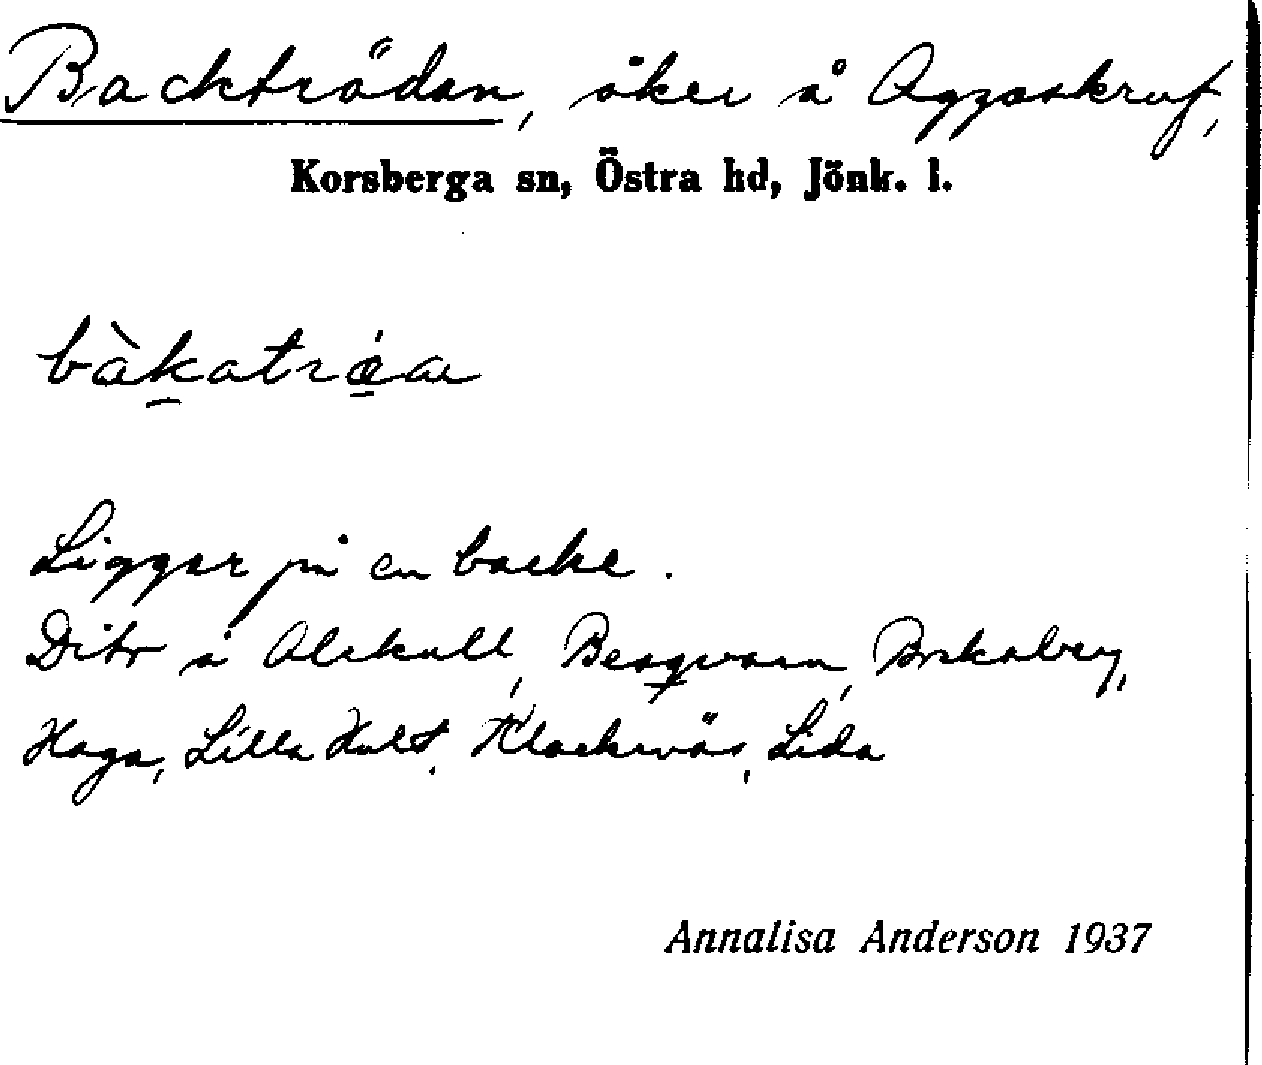 Backträdan, åker å Aggaskruf,
Korsberga sn, Östra hd, Jönk. l.
bàkatráa
Ligger på en backe.
Dito å Alekull, Bergvarn, Boskaberg,
Haga, Lilla Holt, Klackenäs, Lida
Annalisa Anderson 1937